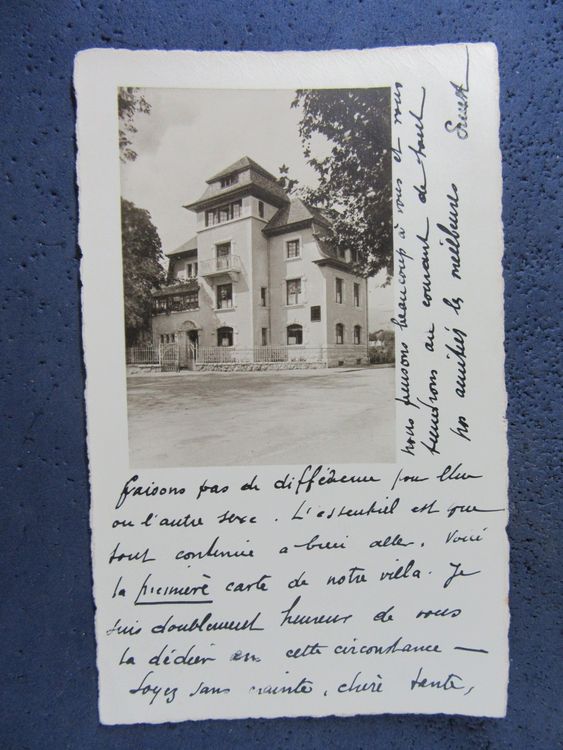 faisons pas de différence pour l'un
ou l'autre sexe. L'essentiel est que
tout continue a bien aller. Voici
la première carte de notre villa. Je
suis doublement heureux de vous
la dédier en cette circonstance —
Soyez sans crainte, chère tante,
nous pensons beaucoup à vous et vous
tiendrons au courant de tout
nos amitiés les meilleures